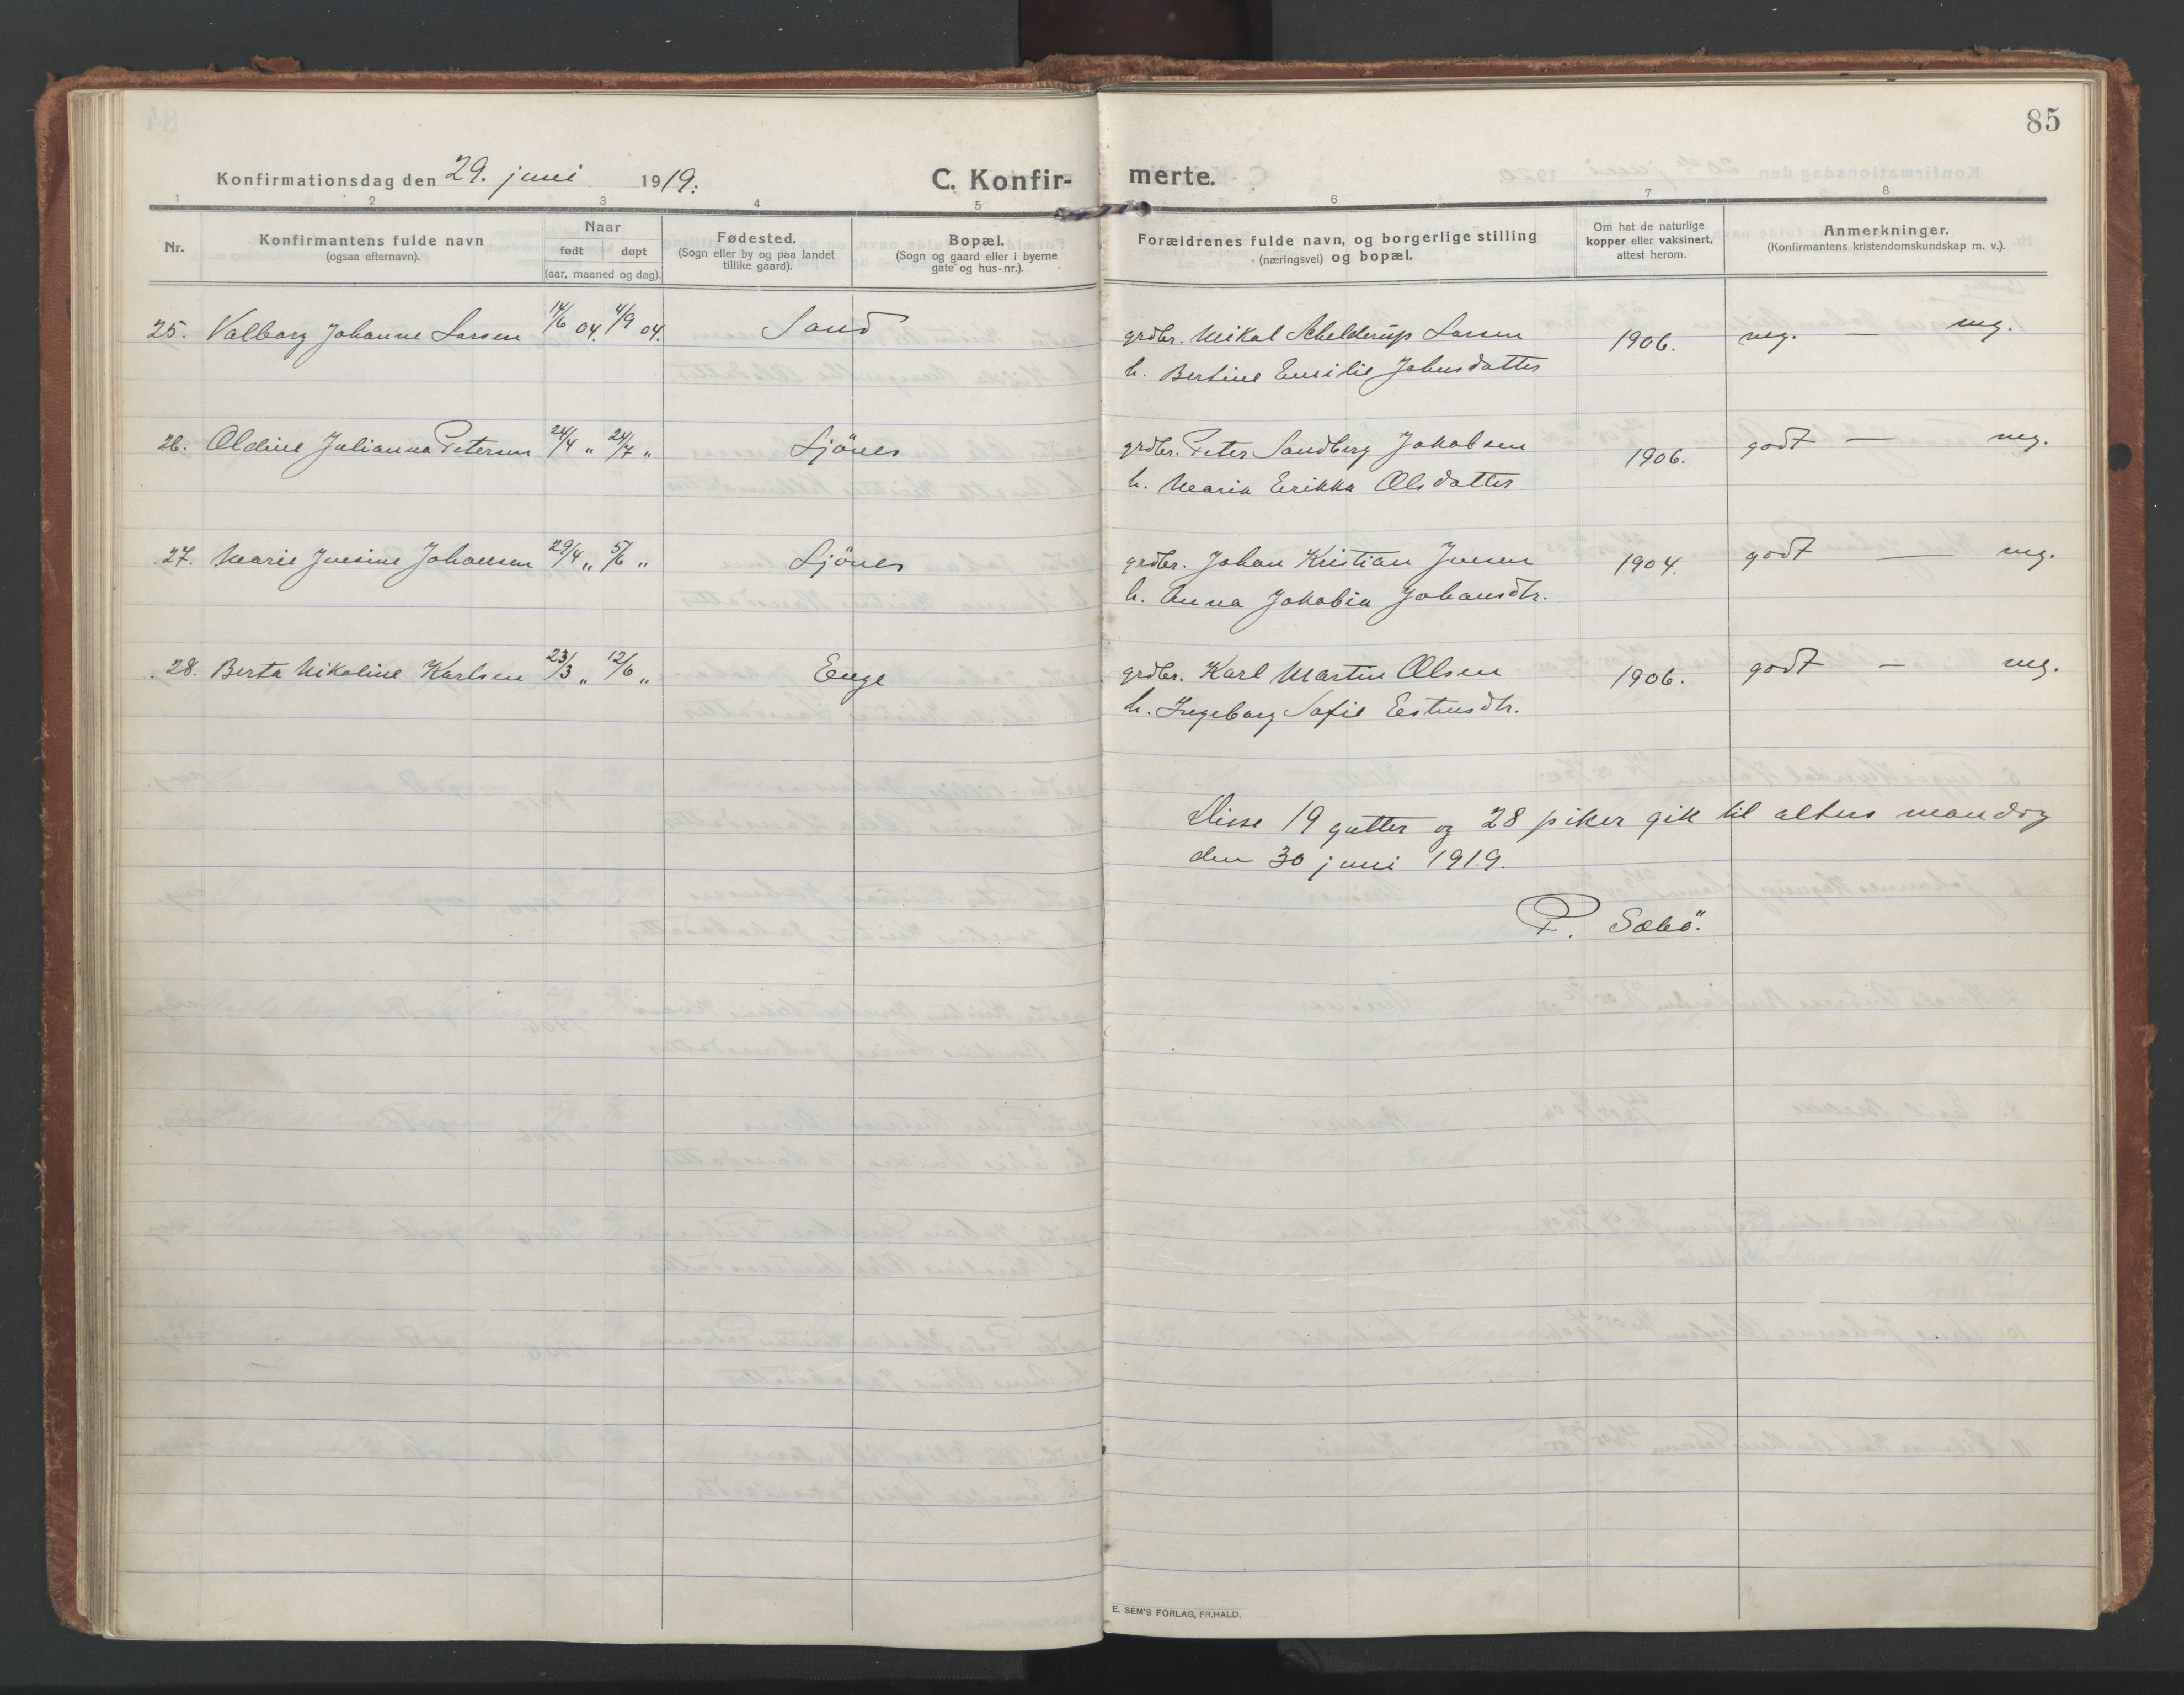 85
Konfirmationsdag den 29. juni 1919.
C. Konfir- merte.
1 2 3 4 5 6 7 8
Nr.
Konfirmantens fulde navn
(ogsaa efternavn).
Naar
født døpt
(aar, maaned og dag).
Fødested.
(Sogn eller by og paa landet
tillike gaard).
Bopæl.
(Sogn og gaard eller i byerne
gate og hus-nr.).
Forældrenes fulde navn, og borgerlige stilling
(næringsvei) og bopæl.
Om hat de naturlige
kopper eller vaksinert,
attest herom.
Anmerkninger.
(Konfirmantens kristendomskundskap m. v.).
25. Valborg Johanne Larsen 14/6 04. 4/9 04. Sand grdbr. Mikal Schelderup Larsen 1906. mg. — mg.
h. Bertine Emilie Johnsdatter
26. Oldine Julianna Petersen 24/4 " 24/7 " Ljönes grdbr. Peter Sandberg Jakobsen 1906. godt — mg.
h. Maria Erikka Olsdatter
27. Marie Jensine Johansen 29/4 " 5/6 " Ljönes grdbr. Johan Kristian Jensen 1904. godt — mg.
h. Anna Jakobia Johansdtr.
28. Berta Nikoline Karlsen 23/3 " 12/6 " Enge grdbr. Karl Martin Olsen 1906. godt — mg.
h. Ingeborg Sofie Estensdtr.
Disse 19 gutter og 28 piker gik til alters mandag
den 30 juni 1919.
P. Sæbö.
E. SEM'S FORLAG, FR.HALD.